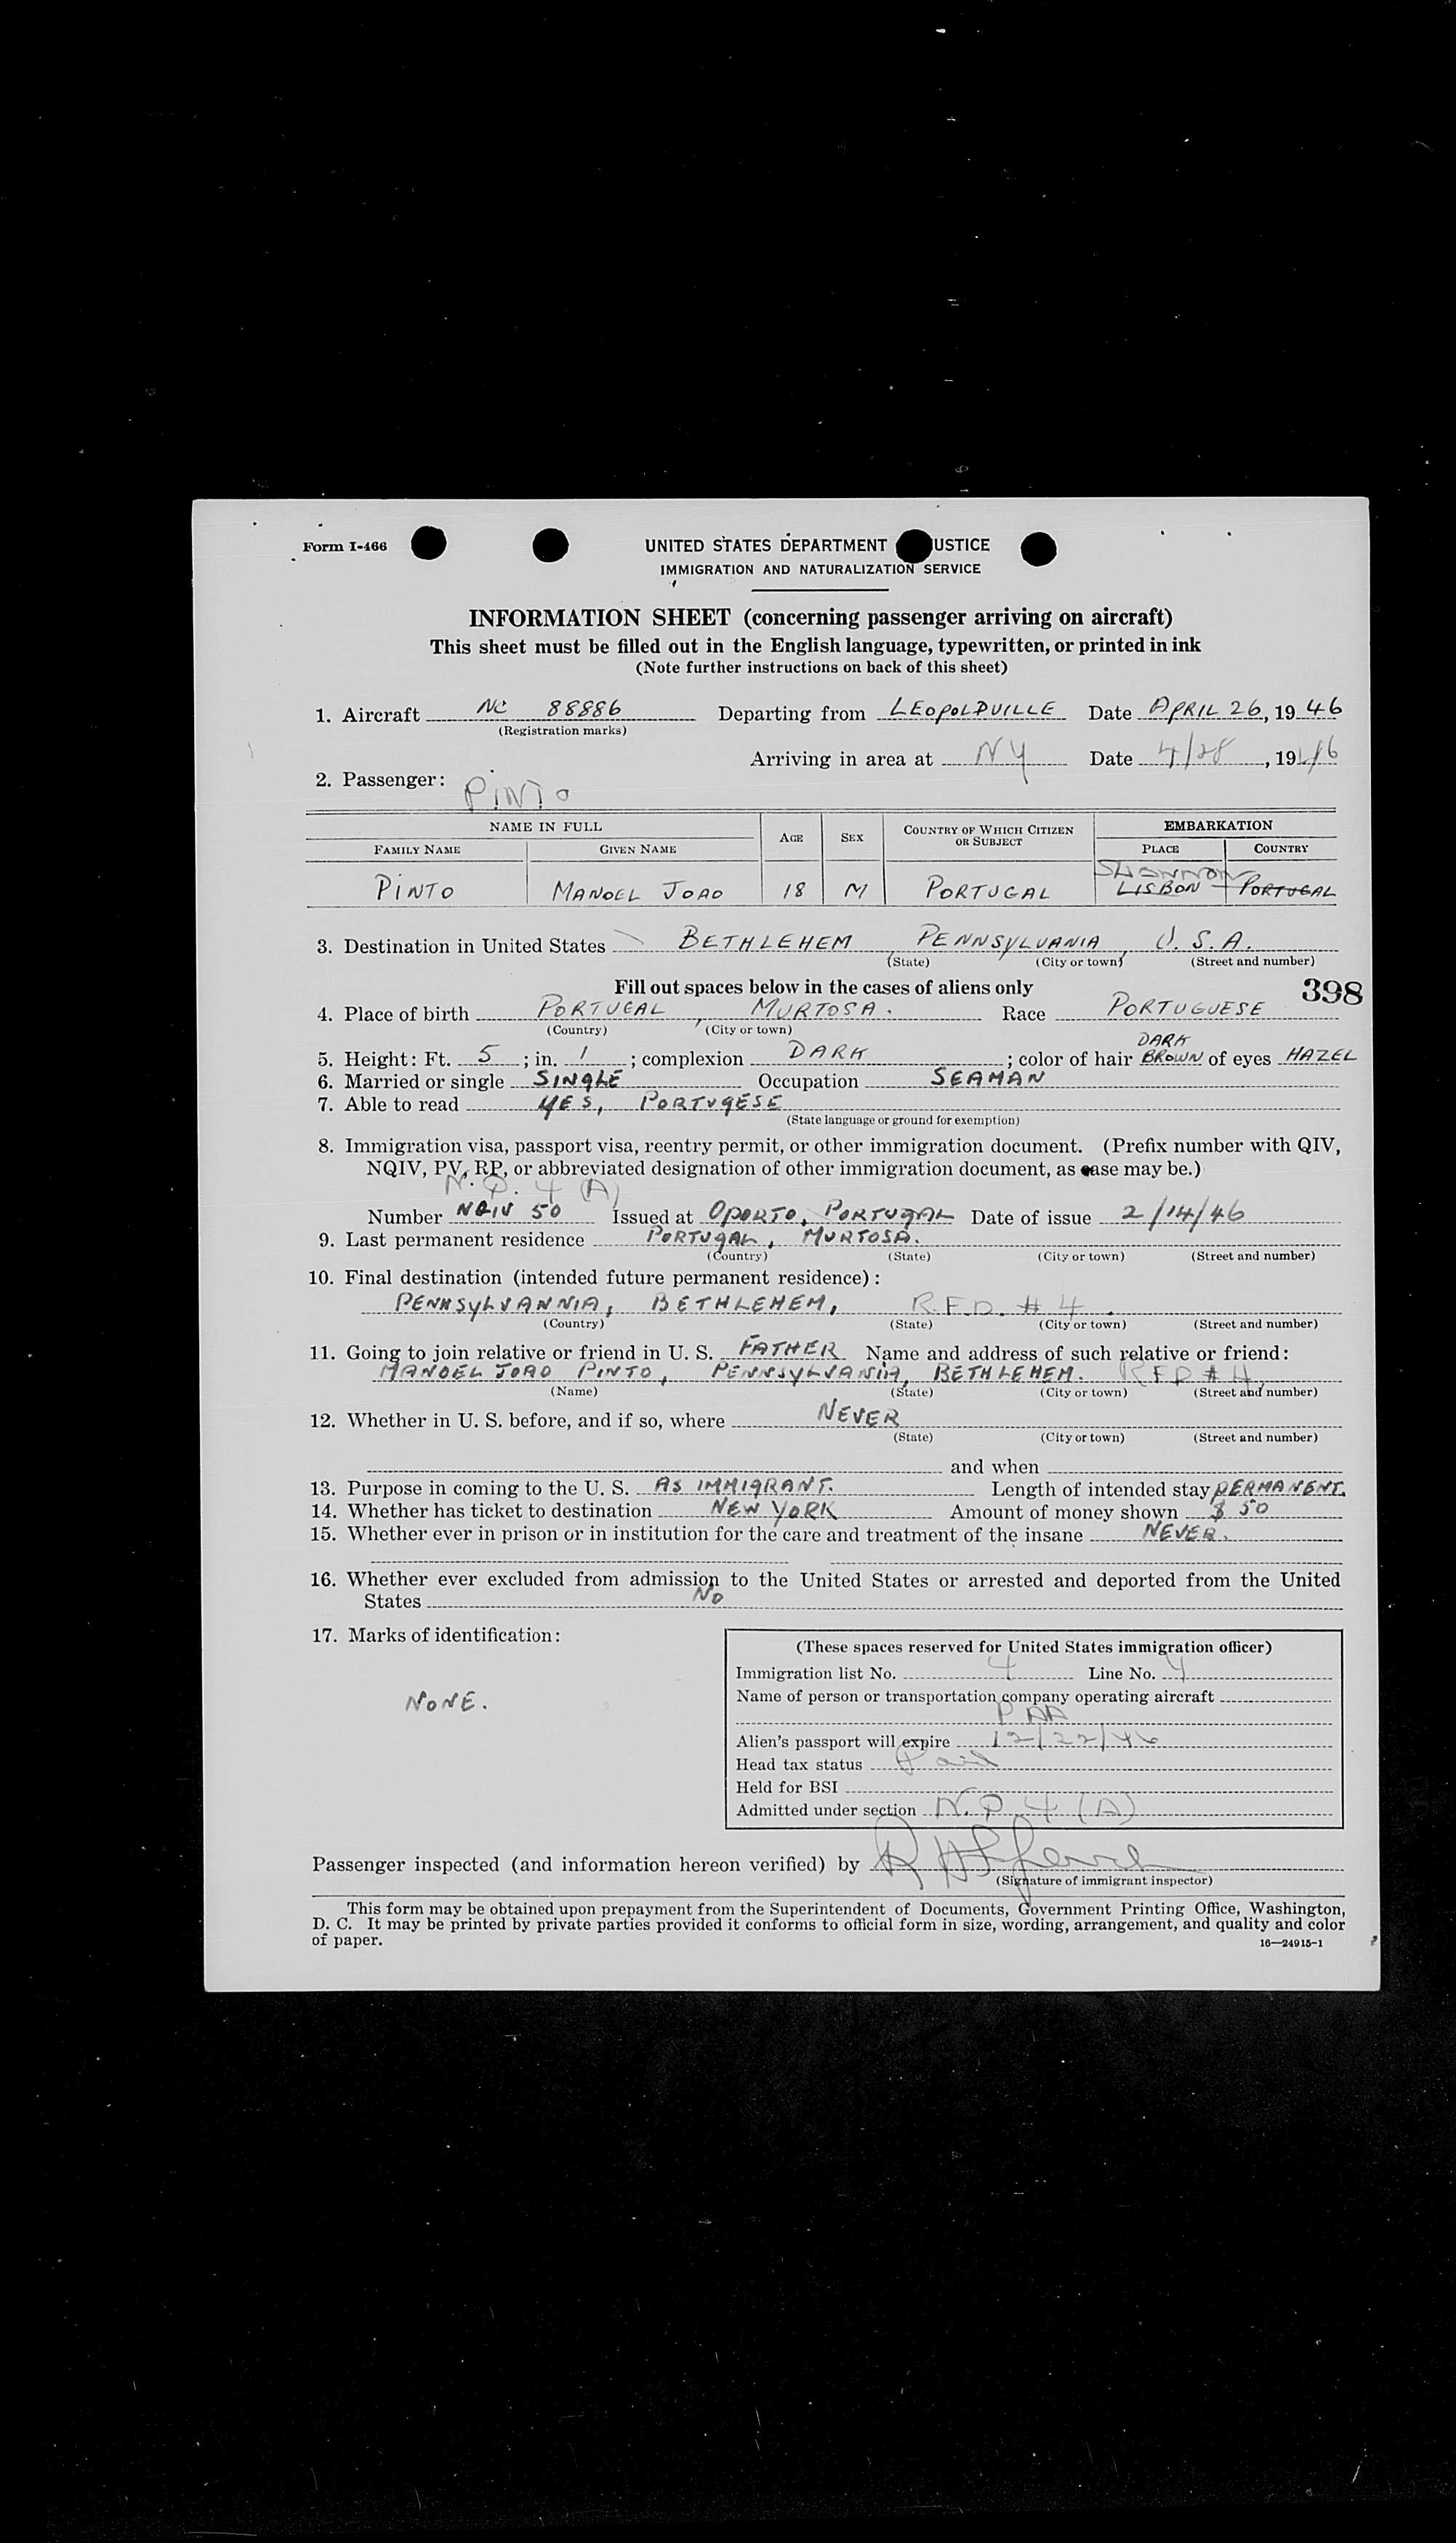 Form I-466
UNITED STATES DEPARTMENT USTICE
IMMIGRATION AND NATURALIZATION SERVICE
INFORMATION SHEET (concerning passenger arriving on aircraft)
This sheet must be filled out in the English language, typewritten, or printed in ink
(Note further instructions on back of this sheet)
1. Aircraft NC 88886 Departing from LEOPOLDVILLE Date APRIL 26, 1946
(Registration marks)
Arriving in area at NY Date 4/28, 1946
2. Passenger: PINTO
NAME IN FULL AGE SEX COUNTRY OF WHICH CITIZEN OR SUBJECT EMBARKATION
FAMILY NAME GIVEN NAME PLACE COUNTRY
SHANNON
PINTO MANOEL JOAO 18 M PORTUGAL LISBON PORTUGAL
3. Destination in United States BETHLEHEM, PENNSYLVANIA, U.S.A.
(State) (City or town) (Street and number)
Fill out spaces below in the cases of aliens only 398
4. Place of birth PORTUGAL, MURTOSA. Race PORTUGUESE
(Country) (City or town)
DARK
5. Height: Ft. 5; in. 1; complexion DARK; color of hair BROWN of eyes HAZEL
6. Married or single SINGLE Occupation SEAMAN
7. Able to read YES, PORTUGESE
(State language or ground for exemption)
8. Immigration visa, passport visa, reentry permit, or other immigration document. (Prefix number with QIV,
NQIV, PV, RP, or abbreviated designation of other immigration document, as case may be.)
N.P. 4 (A)
Number NQIV 50 Issued at OPORTO, PORTUGAL Date of issue 2/14/46
9. Last permanent residence PORTUGAL, MURTOSA.
(Country) (State) (City or town) (Street and number)
10. Final destination (intended future permanent residence):
PENNSYLVANNIA, BETHLEHEM, R.F.D. # 4.
(Country) (State) (City or town) (Street and number)
11. Going to join relative or friend in U. S. FATHER Name and address of such relative or friend:
MANOEL JOAO PINTO, PENNSYLVANIA, BETHLEHEM. RFD # 4
(Name) (State) (City or town) (Street and number)
12. Whether in U. S. before, and if so, where NEVER
(State) (City or town) (Street and number)
and when
13. Purpose in coming to the U. S. AS IMMIGRANT. Length of intended stay PERMANENT.
14. Whether has ticket to destination NEW YORK Amount of money shown $ 50
15. Whether ever in prison or in institution for the care and treatment of the insane NEVER.
16. Whether ever excluded from admission to the United States or arrested and deported from the United
States NO
17. Marks of identification:
NONE.
(These spaces reserved for United States immigration officer)
Immigration list No. 4 Line No. 4
Name of person or transportation company operating aircraft
PAA
Alien's passport will expire 12/22/46
Head tax status Paid
Held for BSI
Admitted under section N.P. 4 (A)
Passenger inspected (and information hereon verified) by
(Signature of immigrant inspector)
This form may be obtained upon prepayment from the Superintendent of Documents, Government Printing Office, Washington,
D. C. It may be printed by private parties provided it conforms to official form in size, wording, arrangement, and quality and color
of paper.
16—24915-1